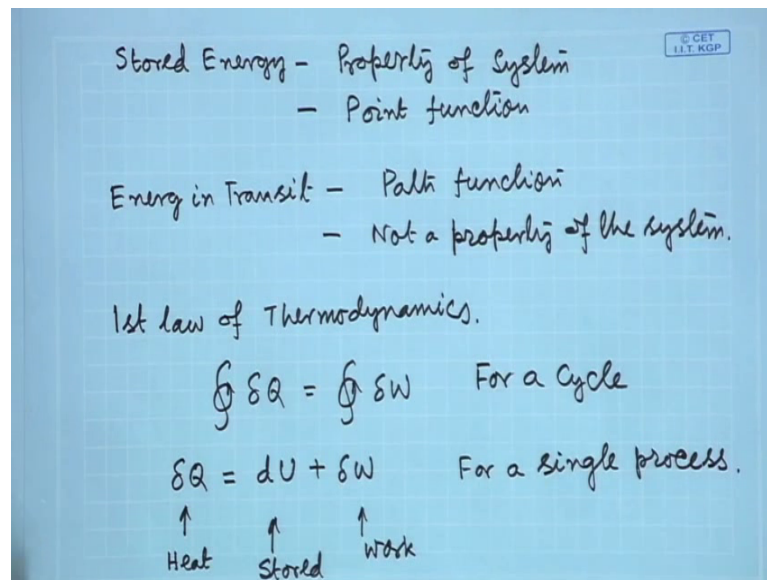 © CET
I.I.T. KGP
Stored Energy - Property of System
- Point function
Energ in Transit - Path function
- Not a property of the system.
1st law of Thermodynamics.
∮ δQ = ∮ δW For a Cycle
δQ = dU + δW For a single process.
↑ ↑ ↑
Heat Stored Work